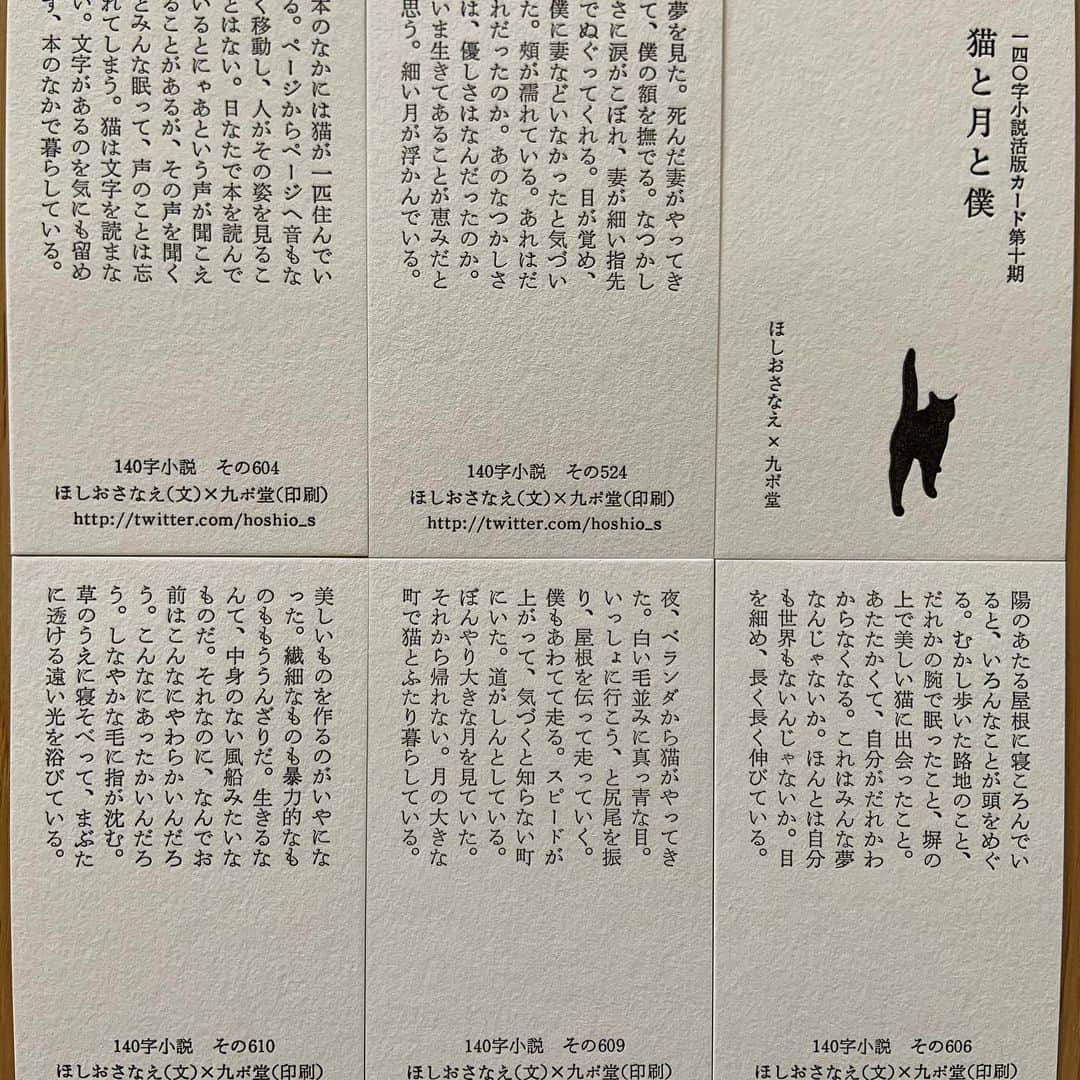 一四〇字小説活版カード第十期
猫と月と僕
ほしおさなえ×九ポ堂
夢を見た。死んだ妻がやってき
て、僕の額を撫でる。なつかし
さに涙がこぼれ、妻が細い指先
でぬぐってくれる。目が覚め、
僕に妻などいなかったと気づい
た。頬が濡れている。あれはだ
れだったのか。あのなつかしさ
は、優しさはなんだったのか。
いま生きてあることが恵みだと
思う。細い月が浮かんでいる。
140字小説　その524
ほしおさなえ(文)×九ポ堂(印刷)
http://twitter.com/hoshio_s
本のなかには猫が一匹住んでい
る。ページからページへ音もな
く移動し、人がその姿を見るこ
とはない。日なたで本を読んで
いるとにゃあという声が聞こえ
ることがあるが、その声を聞く
とみんな眠って、声のことは忘
れてしまう。猫は文字を読まな
い。文字があるのを気にも留め
ず、本のなかで暮らしている。
140字小説　その604
ほしおさなえ(文)×九ポ堂(印刷)
http://twitter.com/hoshio_s
陽のあたる屋根に寝ころんでい
ると、いろんなことが頭をめぐ
る。むかし歩いた路地のこと、
だれかの腕で眠ったこと、塀の
上で美しい猫に出会ったこと。
あたたかくて、自分がだれかわ
からなくなる。これはみんな夢
なんじゃないか。ほんとは自分
も世界もないんじゃないか。目
を細め、長く長く伸びている。
140字小説　その606
ほしおさなえ(文)×九ポ堂(印刷)
夜、ベランダから猫がやってき
た。白い毛並みに真っ青な目。
いっしょに行こう、と尻尾を振
り、屋根を伝って走っていく。
僕もあわてて走る。スピードが
上がって、気づくと知らない町
にいた。道がしんとしている。
ぼんやり大きな月を見ていた。
それから帰れない。月の大きな
町で猫とふたり暮らしている。
140字小説　その609
ほしおさなえ(文)×九ポ堂(印刷)
美しいものを作るのがいやにな
った。繊細なものも暴力的なも
のももううんざりだ。生きるな
んて、中身のない風船みたいな
ものだ。それなのに、なんでお
前はこんなにやわらかいんだろ
う。こんなにあったかいんだろ
う。しなやかな毛に指が沈む。
草のうえに寝そべって、まぶた
に透ける遠い光を浴びている。
140字小説　その610
ほしおさなえ(文)×九ポ堂(印刷)